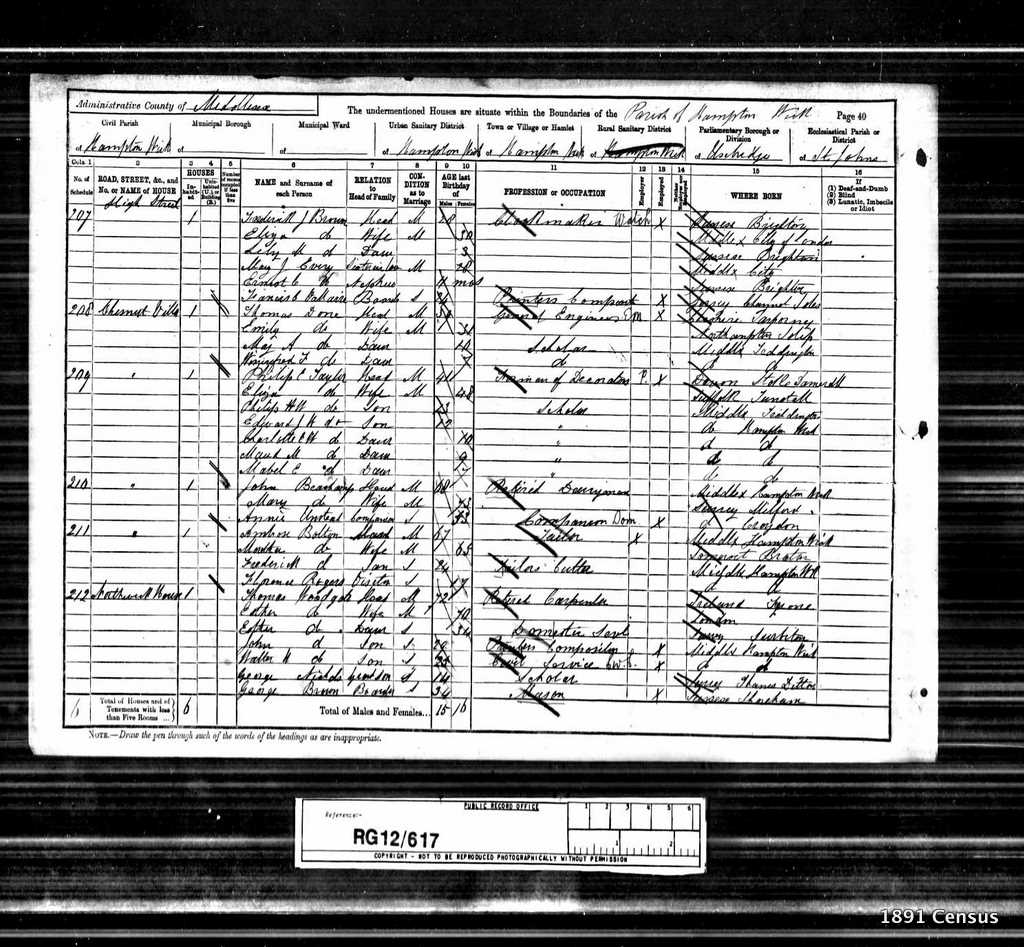 Administrative County of Middlesex
The undermentioned Houses are situate within the Boundaries of the Parish of Hampton Wick
Page 40
Civil Parish
Municipal Borough
Municipal Ward
Urban Sanitary District
Town or Village or Hamlet
Rural Sanitary District
Parliamentary Borough or Division
Ecclesiastical Parish or District
of Hampton Wick
of
of
of Hampton Wick
of Hampton Wick
of Hampton Wick
of Uxbridge
of St. Johns
Cols. 1 2 3 4 5 6 7 8 9 10 11 12 13 14 15 16
No. of Schedule
ROAD, STREET, &c., and No. or NAME of HOUSE
HOUSES
NAME and Surname of each Person
RELATION to Head of Family
CONDITION as to Marriage
AGE last Birthday of
Males Females
PROFESSION or OCCUPATION
Employer
Employed
WHERE BORN
(1) Deaf-and-Dumb
(2) Blind
(3) Lunatic, Imbecile or Idiot
High Street
207 1 Frederick J Brown Head M Watch X Sussex Brighton
Eliza do Wife M 30 Middlx City of London
Lily M do Daur 3 Sussex Brighton
May J Every M 28 Middlx City
Ernest C Nephew 11 mos Sussex Brighton
Boarder S Printers Composit X Channel Isles
208 Chesnut Villa 1 Thomas Done Head M General Engineer X Tarporley
Emily do Wife M
May A do Daur 10 Scholar Middlx Teddington
Winifred F do Daur 7 do
209 " 1 Philip E Taylor Head M 41 Foreman of Decorators X Devon
Eliza do Wife M 48 Suffolk Tunstall
Philip H W do Son 13 Scholar Middlx Teddington
Edward J W do Son 12 " do Hampton Wick
Charlotte E W do Daur 10 d d
Maud M do Daur 9 " d d
Mabel E do Daur 7 " d d
210 " 1 John Beachamp Head M 68 Retired Dairyman Middlex Hampton Wick
Mary do Wife M 73 Surrey Milford
Annie Unstead Companion S 53 Companion Dom X d Croydon
211 " 1 Ambrose Bolton Head M 67 Tailor X Middlx Hampton Wick
Martha do Wife M 65 Somerset Bruton
Frederick d Son S 24 Tailors Cutter Middlx Hampton Wk
Florence Rogers Visitor S 17 d d
212 Northwick House 1 Thomas Woodgate Head M 72 Retired Carpenter Ireland Tyrone
Esther do Wife M 70 London
Esther do Daur S 34 Domestic Servt Surrey Surbiton
John d Son S 29 Printers Compositor X Middlx Hampton Wick
Walter W do Son S 25 Civil Service X d d
George Nields Grandson S 14 Scholar Surrey Thames Ditton
George Brown Boarder S 34 Mason X Sussex Shoreham
6 Total of Houses and of Tenements with less than Five Rooms ... 6
Total of Males and Females... 15 16
NOTE.—Draw the pen through such of the words of the headings as are inappropriate.
PUBLIC RECORD OFFICE
Reference:-
RG12/617
1 2 3 4 5 6
1 2
COPYRIGHT - NOT TO BE REPRODUCED PHOTOGRAPHICALLY WITHOUT PERMISSION
1891 Census